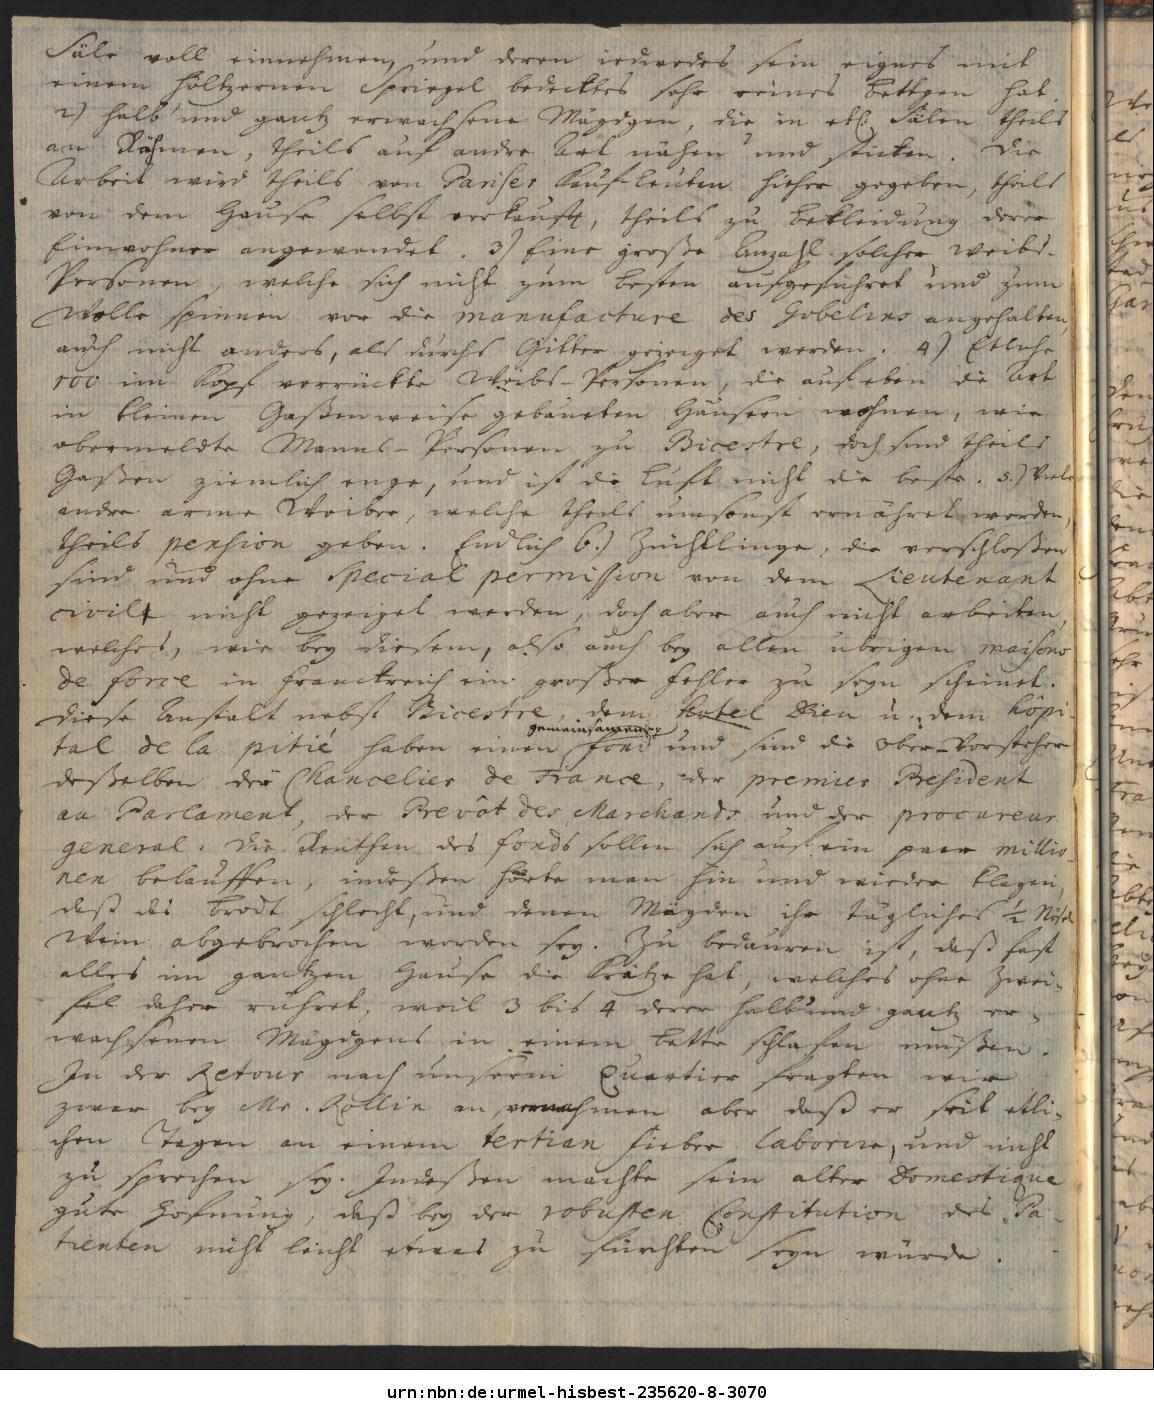 Säle voll einnehmen, und deren iedwedes sein eignes mit
einem höltzernen Spriegel bedecktes sehr reines Bettgen hat.
2) halb und gantz erwachsene Mägdgen, die in etl. Sälen theils
an Rähmen, theils auf andre Art nähen und sticken. Die
Arbeit wird theils von Pariser Kauf-Leuten hieher gegeben, theils
von dem Hause selbst verkaufft, theils zu Bekleidung derer
Einwohner angewendet. 3) Eine große Anzahl solcher Weibs-
Personen, welche sich nicht zum besten aufgeführet und zum
Wolle spinnen vor die manufacture des Gobelins angehalten,
auch nicht anders, als durchs Gitter gezeiget werden. 4) Etliche
100 im Kopf verrückte Weibs-Personen, die auf eben die Art
in kleinen Gaßenweise gebaueten Häusern wohnen, wie
obermeldte Manns-Personen zu Bicestre, doch sind theils
Gaßen ziemlich enge, und ist die Luft nicht die beste. 5.) Viele
andre arme Weiber, welche theils umsonst ernähret werden,
theils pension geben. Endlich 6.) Züchtlinge, die verschloßen
sind und ohne special permission von dem Lieutenant
civil nicht gezeiget werden, doch aber auch nicht arbeiten,
welches, wie bey diesem, also auch bey allen übrigen maisons
de force in Franckreich ein großer Fehler zu seyn scheinet.
Diese Anstalt nebst Bicestre, dem Hotel Dieu u. dem Hôpi-
tal de la pitié haben einen gemeinsamen fond und sind die Ober-Vorsteher
deßelben der Chancelier de France, der premier President
au Parlament, der Prevôt des Marchands und der procureur
general. Die Renthen des fonds sollen sich auf ein paar millio-
nen belauffen, indeßen hörte man hin und wieder klagen,
daß das Brodt schlecht, und denen Mägden ihr tägliches 1/2 Nösel
Wein abgebrochen worden sey. Zu bedauren ist, daß fast
alles im gantzen Hause die Krätze hat, welches ohne Zwei-
fel daher rühret, weil 3 bis 4 derer halb und gantz er-
wachsenen Mägdgens in einem Bette schlafen müßen.
In der Retour nach unserm Quartier fragten wir
zwar bey Mr. Rollin an, vernahmen aber daß er seit etli-
chen Tagen an einem tertian Fieber laborire, und nicht
zu sprechen sey. Indeßen machte sein alter Domestique
gute Hofnung, daß bey der robusten Constitution des Pa-
tienten nicht leicht etwas zu fürchten seyn würde.
urn:nbn:de:urmel-hisbest-235620-8-3070